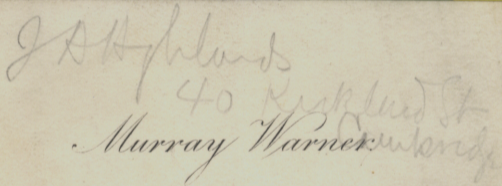 J A Highlands
40 Kirkland St
Cambridge
Murray Warner